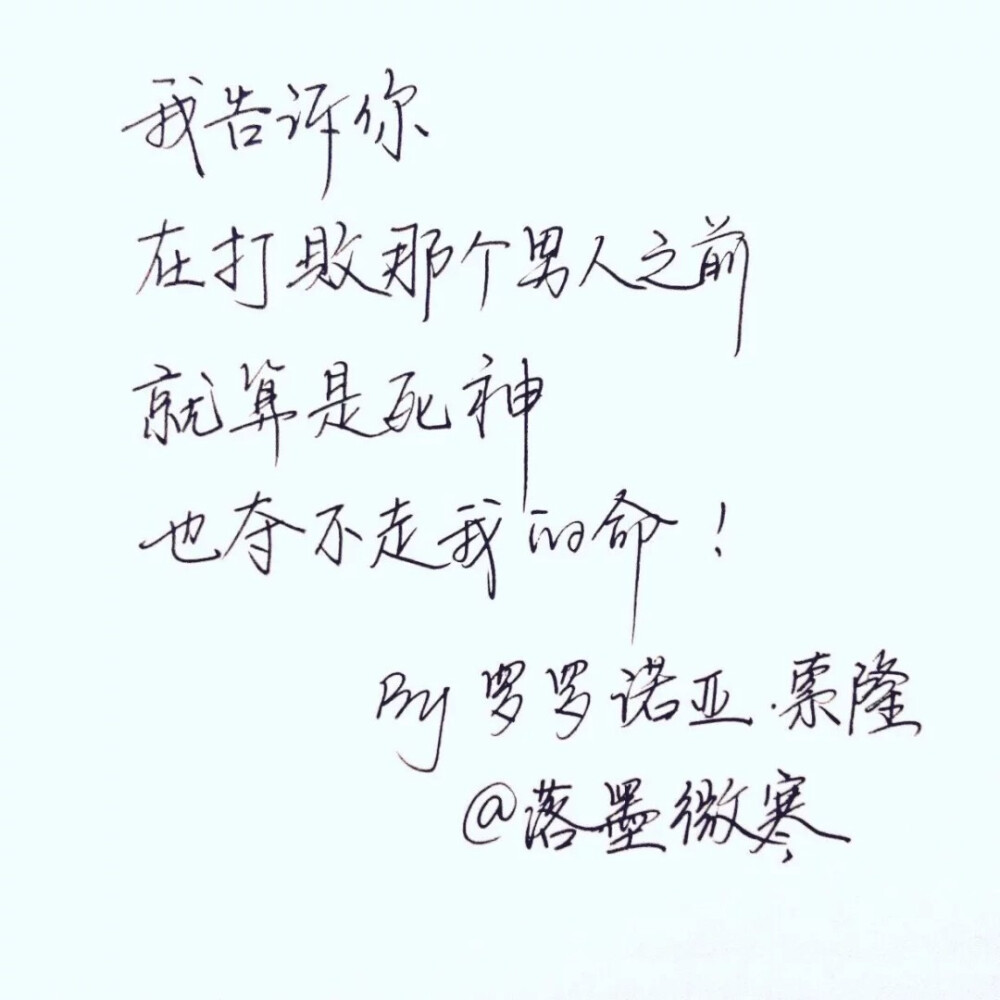 我告诉你
在打败那个男人之前
就算是死神
也夺不走我的命！
By 罗罗诺亚·索隆
@落墨微寒